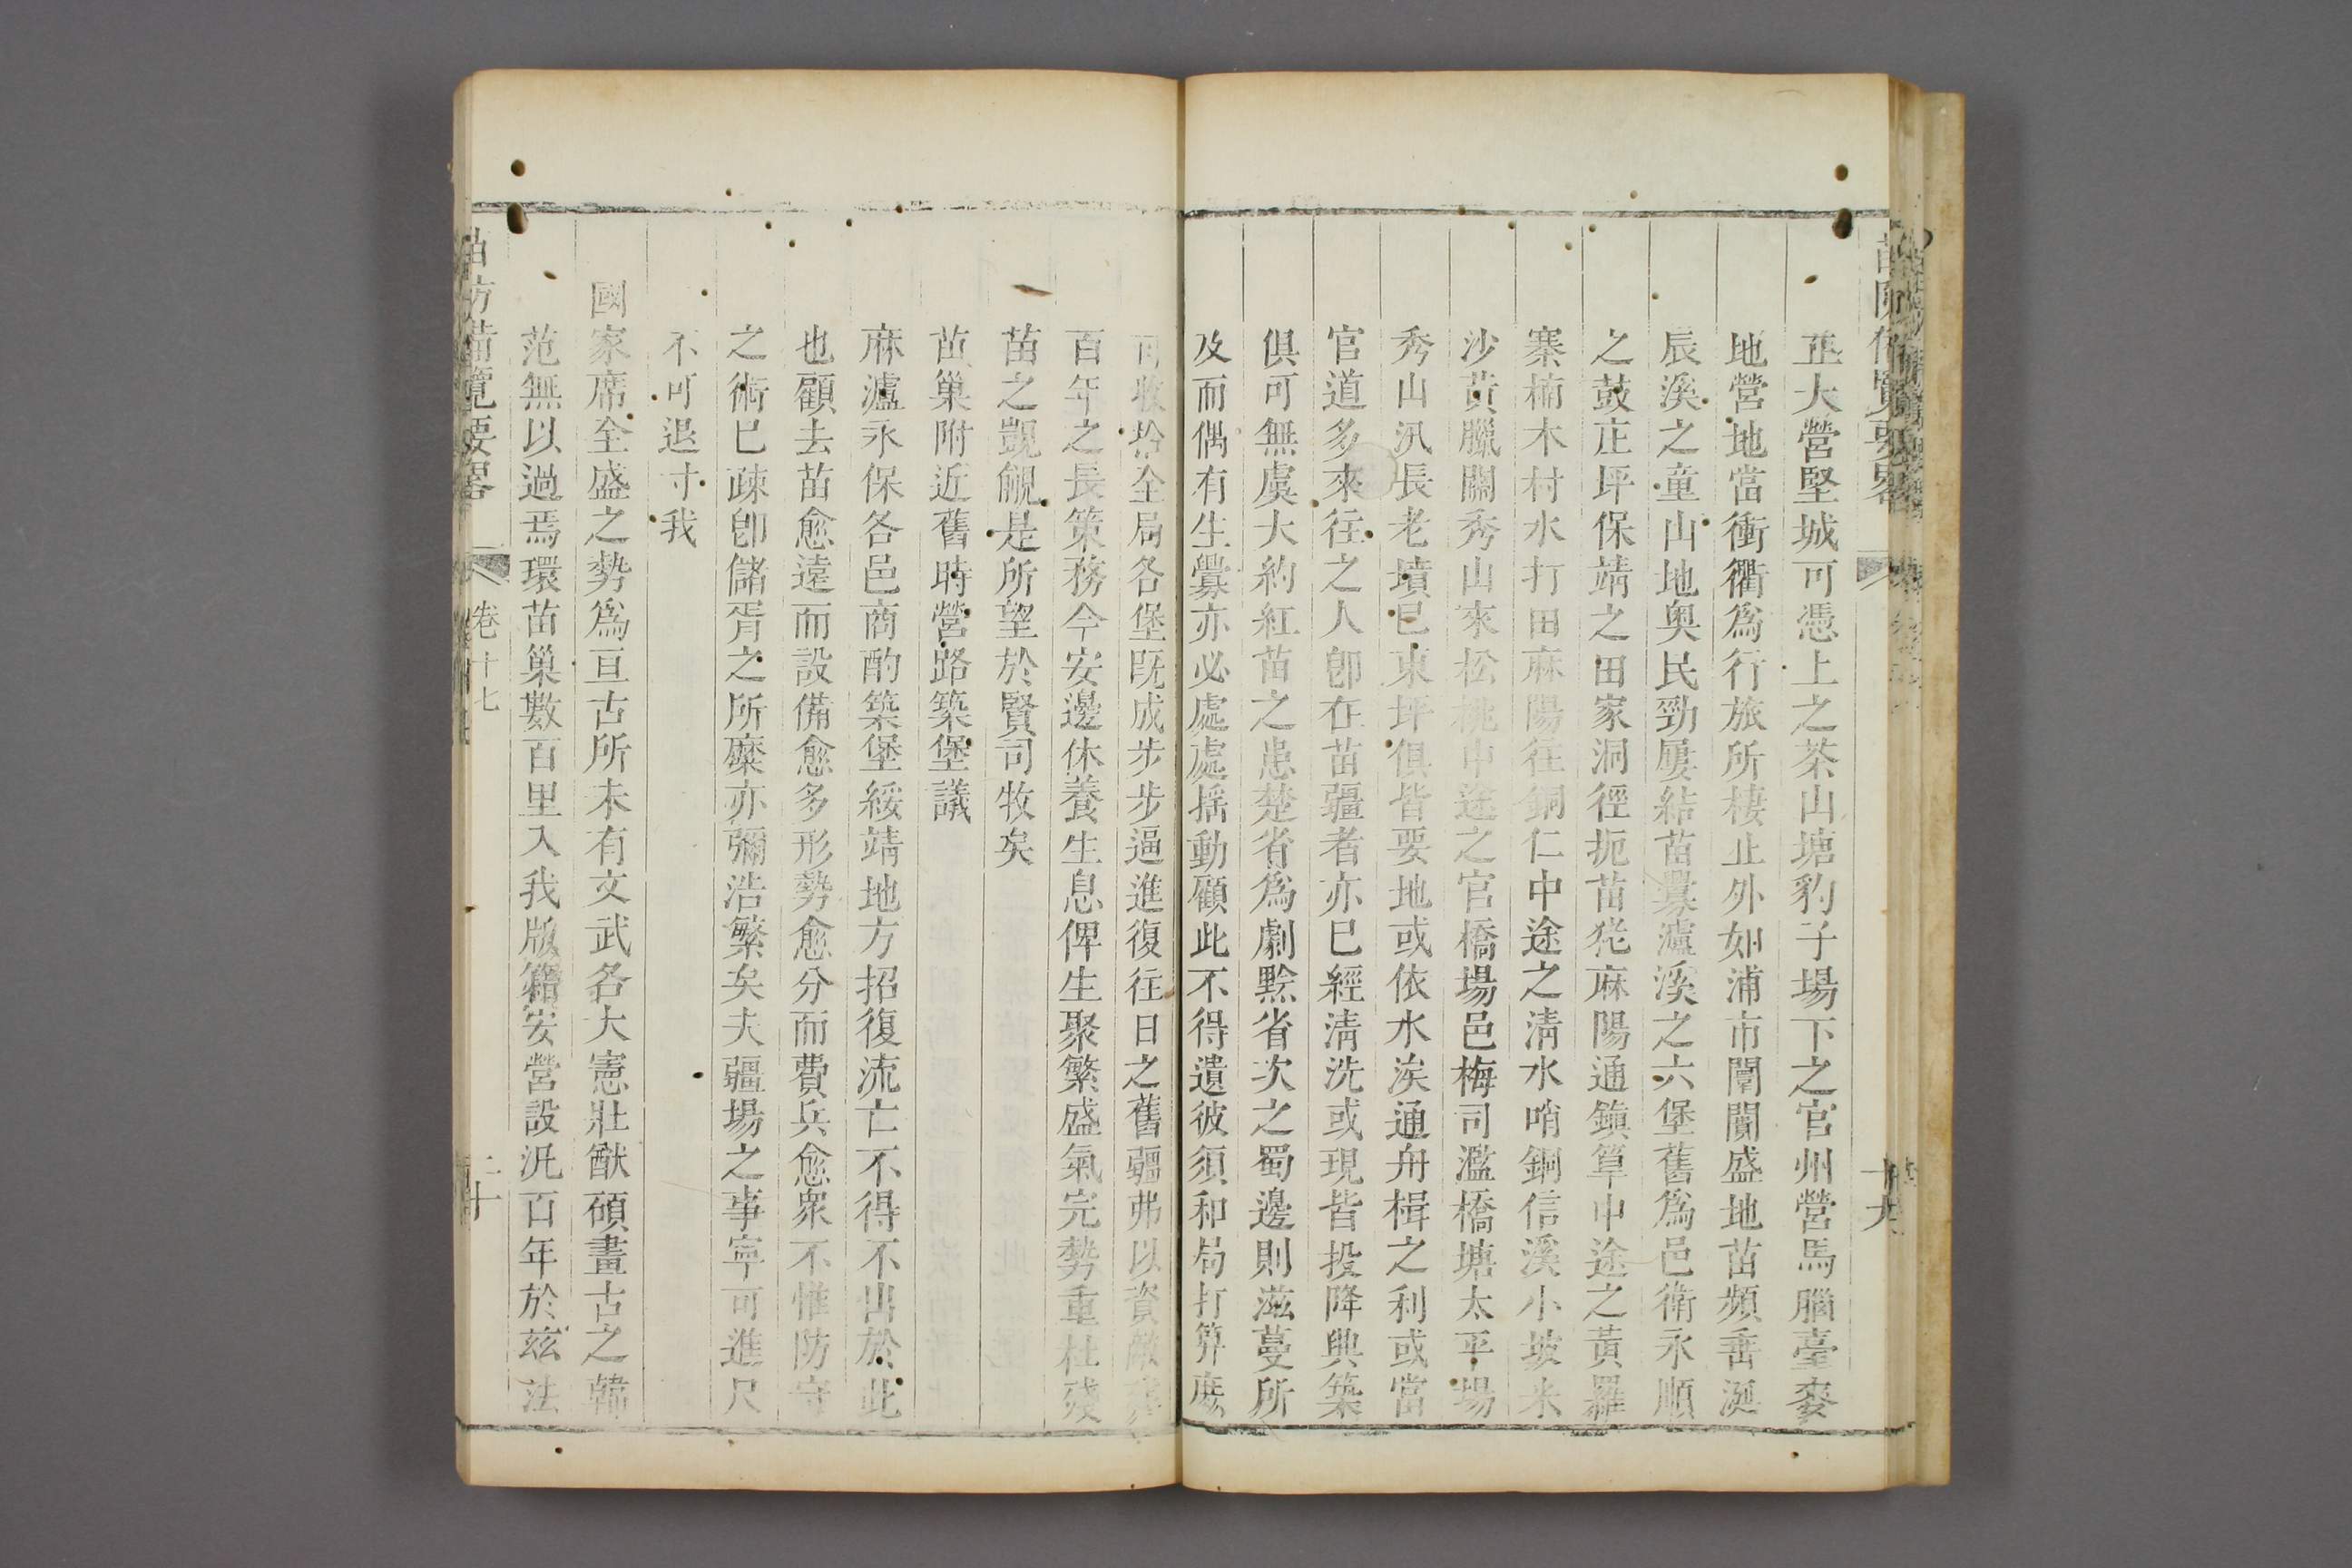 苗防備覽要畧
十九
正大營堅城可憑上之茶山塘豹子場下之官州營馬腦臺麥
地營地當衝衢爲行旅所棲止外如浦市闤闠盛地苗頻垂涎
辰溪之童山地奥民勁屢結苗釁瀘溪之六堡舊爲邑衛永順
之鼓庄坪保靖之田家洞徑扼苗㹫麻陽通鎭筸中途之黃羅
寨楠木村水打田麻陽往銅仁中途之淸水哨銅信溪小坡米
沙黃臘關秀山來松桃中途之官橋場邑梅司濫橋塘太平場
秀山汛長老墳巳東坪俱皆要地或依水涘通舟楫之利或當
官道多來往之人卽在苗疆者亦巳經淸洗或現皆投降興築
俱可無虞大約紅苗之患楚省爲劇黔省次之蜀邊則滋蔓所
及而偶有生釁亦必處處揺動顧此不得遺彼須和局打算庶
可收拾全局各堡旣成步步逼進復往日之舊疆弗以資敵
百年之長策務今安邊休養生息俾生聚繁盛氣完勢重杜殘
苗之覬覦是所望於賢司牧矣
苗巢附近舊時營路築堡議
麻瀘永保各邑商酌築堡綏靖地方招復流亡不得不出於此
也顧去苗愈遠而設備愈多形勢愈分而費兵愈衆不惟防守
之術巳疎卽儲胥之所糜亦彌浩繁矣夫疆場之事寧可進尺
不可退寸我
國家席全盛之勢爲亘古所未有文武各大憲壯猷碩畫古之韓
范無以過焉環苗巢數百里入我版籍安營設汛百年於玆法
苗防備覽要畧
卷十七
二十